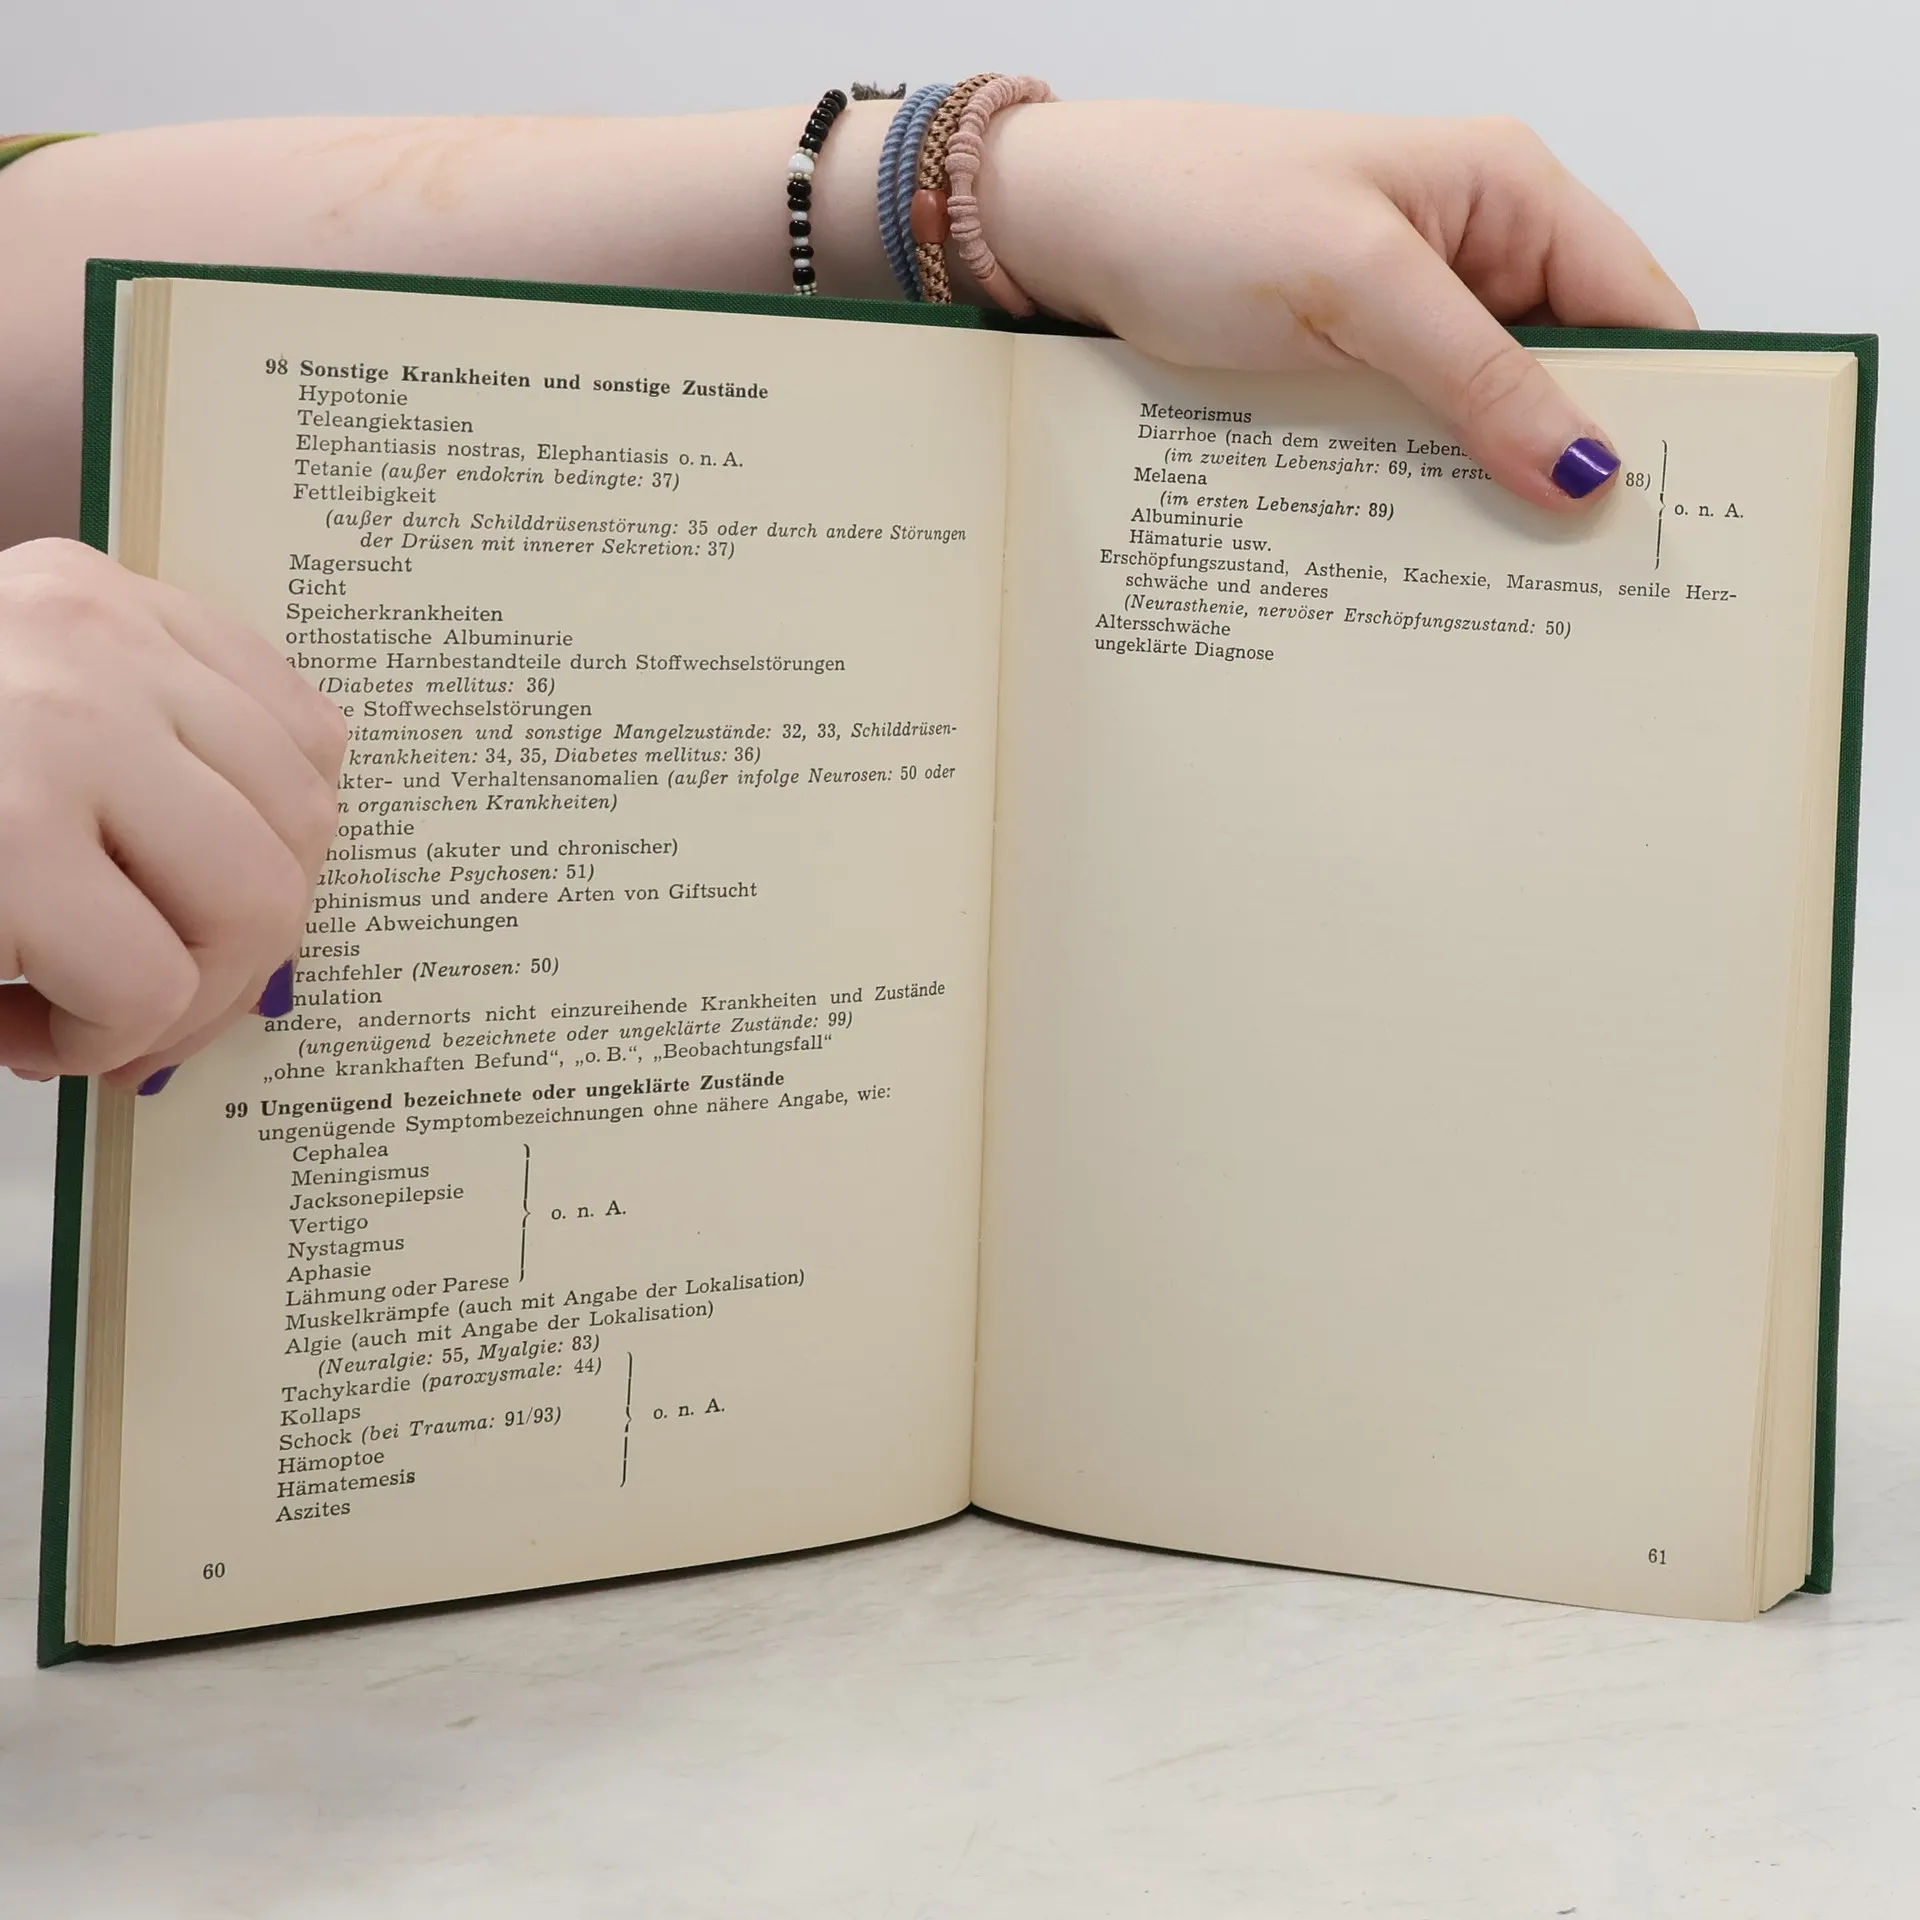 98 Sonstige Krankheiten und sonstige Zustände
Hypotonie
Teleangiektasien
Elephantiasis nostras, Elephantiasis o. n. A.
Tetanie (außer endokrin bedingte: 37)
Fettleibigkeit
(außer durch Schilddrüsenstörung: 35 oder durch andere Störungen
der Drüsen mit innerer Sekretion: 37)
Magersucht
Gicht
Speicherkrankheiten
orthostatische Albuminurie
abnorme Harnbestandteile durch Stoffwechselstörungen
(Diabetes mellitus: 36)
Stoffwechselstörungen
und sonstige Mangelzustände: 32, 33, Schilddrüsen-
krankheiten: 34, 35, Diabetes mellitus: 36)
und Verhaltensanomalien (außer infolge Neurosen: 50 oder
organischen Krankheiten)
(akuter und chronischer)
alkoholische Psychosen: 51)
und andere Arten von Giftsucht
Abweichungen
(Neurosen: 50)
andere, andernorts nicht einzureihende Krankheiten und Zustände
(ungenügend bezeichnete oder ungeklärte Zustände: 99)
„ohne krankhaften Befund“, „o. B.“, „Beobachtungsfall“
99 Ungenügend bezeichnete oder ungeklärte Zustände
ungenügende Symptombezeichnungen ohne nähere Angabe, wie:
Cephalea
Meningismus
Jacksonepilepsie
Vertigo
o. n. A.
Nystagmus
Aphasie
Lähmung oder Parese
Muskelkrämpfe (auch mit Angabe der Lokalisation)
Algie (auch mit Angabe der Lokalisation)
(Neuralgie: 55, Myalgie: 83)
Tachykardie (paroxysmale: 44)
Kollaps
Schock (bei Trauma: 91/93)
o. n. A.
Hämoptoe
Hämatemesis
Aszites
60
Meteorismus
Diarrhoe (nach dem zweiten
(im zweiten Lebensjahr: 69, im 88)
Melaena
o. n. A.
(im ersten Lebensjahr: 89)
Albuminurie
Hämaturie usw.
Erschöpfungszustand, Asthenie, Kachexie, Marasmus, senile Herz-
schwäche und anderes
(Neurasthenie, nervöser Erschöpfungszustand: 50)
Altersschwäche
ungeklärte Diagnose
61